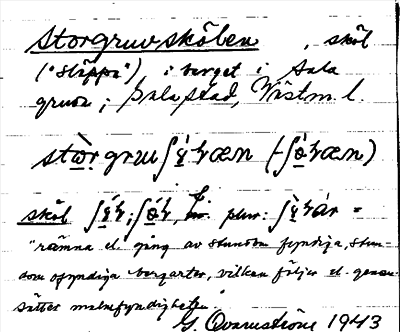 Storgruvskölen , sköl
("släppa") i berget i Sala
gruva ; Sala stad, Västm. l.
stor gruv
sköl plur. =
"rämna el. gång av stundom fyndiga, stun-
dom ofyndiga bergarter, vilken följer el. genom-
sätter malmfyndigheten."
G. Qvarnström 1943